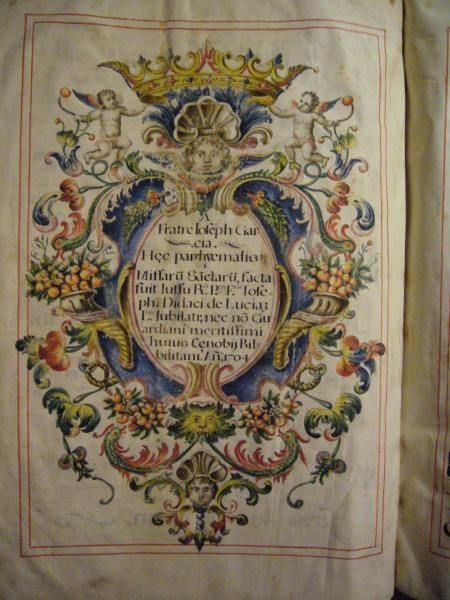 A
Fratre Ioseph Gar
cia.
Hęc parhyematis
Missarū Sāctarū, facta
fuit Iussu R. P. F. Iose
phi Didaci de Lucia;
L. Iubilati; nec nō Gu
ardiani meritissimi
huius Cenobij Bil
bilitani Añ. 1704